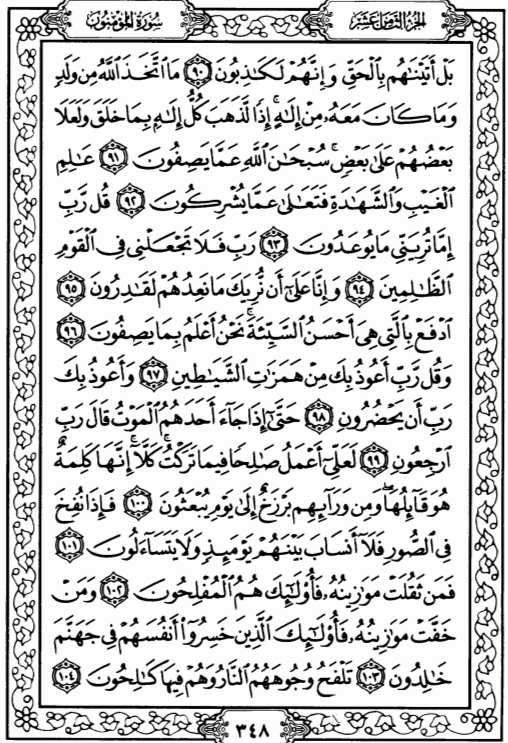 سورة المؤمنون
الجزء الثامن عشر
بَلْ أَتَيْنَٰهُم بِٱلْحَقِّ وَإِنَّهُمْ لَكَٰذِبُونَ ٩٠ مَا ٱتَّخَذَ ٱللَّهُ مِن وَلَدٍ
وَمَا كَانَ مَعَهُۥ مِنْ إِلَٰهٍ ۚ إِذًا لَّذَهَبَ كُلُّ إِلَٰهٍۭ بِمَا خَلَقَ وَلَعَلَا
بَعْضُهُمْ عَلَىٰ بَعْضٍ ۚ سُبْحَٰنَ ٱللَّهِ عَمَّا يَصِفُونَ ٩١ عَٰلِمِ
ٱلْغَيْبِ وَٱلشَّهَٰدَةِ فَتَعَٰلَىٰ عَمَّا يُشْرِكُونَ ٩٢ قُل رَّبِّ
إِمَّا تُرِيَنِّي مَا يُوعَدُونَ ٩٣ رَبِّ فَلَا تَجْعَلْنِي فِي ٱلْقَوْمِ
ٱلظَّٰلِمِينَ ٩٤ وَإِنَّا عَلَىٰٓ أَن نُّرِيَكَ مَا نَعِدُهُمْ لَقَٰدِرُونَ ٩٥
ٱدْفَعْ بِٱلَّتِي هِيَ أَحْسَنُ ٱلسَّيِّئَةَ ۚ نَحْنُ أَعْلَمُ بِمَا يَصِفُونَ ٩٦
وَقُل رَّبِّ أَعُوذُ بِكَ مِنْ هَمَزَٰتِ ٱلشَّيَٰطِينِ ٩٧ وَأَعُوذُ بِكَ
رَبِّ أَن يَحْضُرُونِ ٩٨ حَتَّىٰٓ إِذَا جَآءَ أَحَدَهُمُ ٱلْمَوْتُ قَالَ رَبِّ
ٱرْجِعُونِ ٩٩ لَعَلِّيٓ أَعْمَلُ صَٰلِحًا فِيمَا تَرَكْتُ ۚ كَلَّآ ۚ إِنَّهَا كَلِمَةٌ
هُوَ قَآئِلُهَا ۖ وَمِن وَرَآئِهِم بَرْزَخٌ إِلَىٰ يَوْمِ يُبْعَثُونَ ١٠٠ فَإِذَا نُفِخَ
فِي ٱلصُّورِ فَلَآ أَنسَابَ بَيْنَهُمْ يَوْمَئِذٍ وَلَا يَتَسَآءَلُونَ ١٠١
فَمَن ثَقُلَتْ مَوَٰزِينُهُۥ فَأُو۟لَٰٓئِكَ هُمُ ٱلْمُفْلِحُونَ ١٠٢ وَمَنْ
خَفَّتْ مَوَٰزِينُهُۥ فَأُو۟لَٰٓئِكَ ٱلَّذِينَ خَسِرُوٓا۟ أَنفُسَهُمْ فِي جَهَنَّمَ
خَٰلِدُونَ ١٠٣ تَلْفَحُ وُجُوهَهُمُ ٱلنَّارُ وَهُمْ فِيهَا كَٰلِحُونَ ١٠٤
٣٤٨